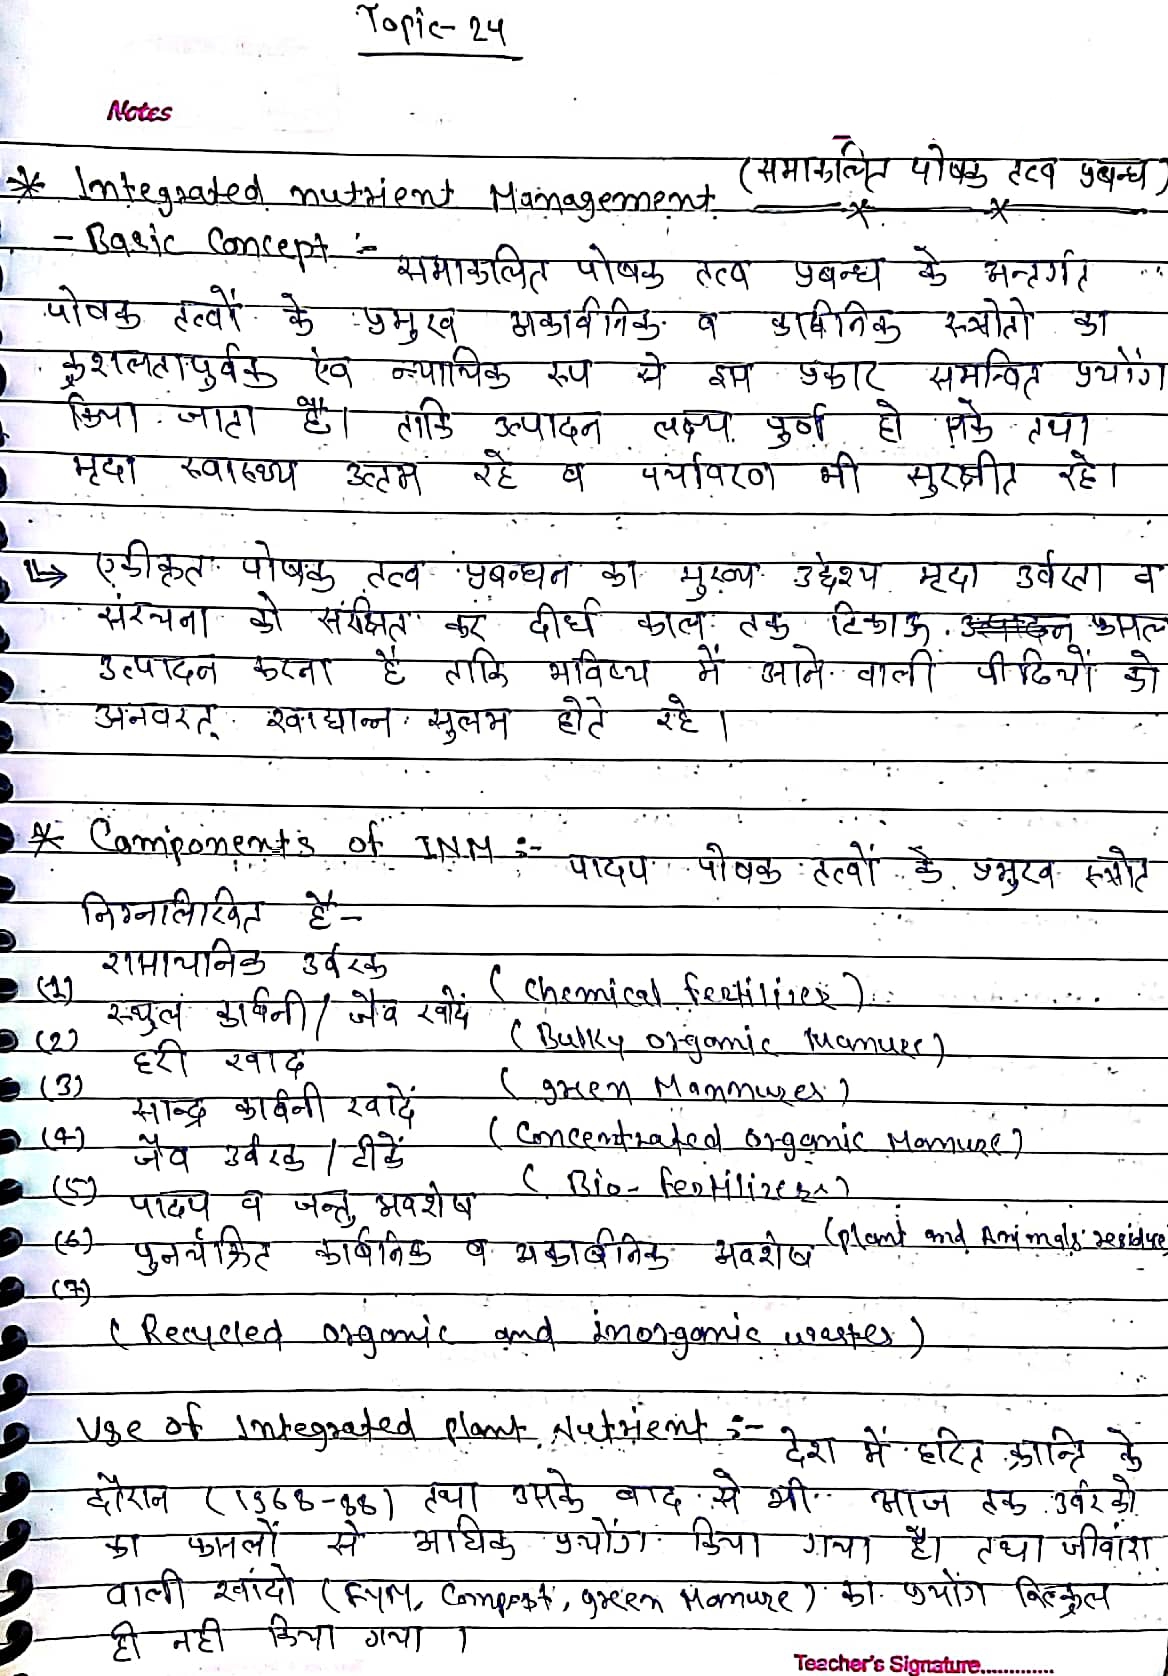 Topic- 24
Notes
* Integrated nutrient Management (समाकलित पोषक तत्व प्रबन्ध)
- Basic Concept :- समाकलित पोषक तत्व प्रबन्ध के अन्तर्गत
पोषक तत्वों के प्रमुख अकार्बनिक व कार्बनिक स्त्रोतो का
कुशलतापुर्वक एंव न्यायिक रूप से इस प्रकार समन्वित प्रयोंग
किया जाता है। ताकि उत्पादन लक्ष्य पुर्ण हो सके तथा
मृदा स्वास्थ्य उत्तम रहे व पर्यावरण भी सुरक्षीत रहे।
↳ एकीकृत पोषक तत्व प्रबन्धन का मुख्य उद्देश्य मृदा उर्वरता व
संरचना को संरक्षित कर दीर्घ काल तक टिकाऊ उत्पादन फसल
उत्पादन करना है ताकि भविष्य में आने वाली पीढियों को
अनवरत् खाद्यान्न सुलभ होते रहे।
* Components of INM :- पादप पोषक तत्वों के प्रमुख स्त्रोत
निम्नलिखित है-
(1) रासायनिक उर्वरक (Chemical fertilizer)
(2) स्थुल कार्बनी/जैव खादें (Bulky organic Manure)
(3) हरी खाद (green Manmures)
(4) सान्द्र कार्बनी खादें (Concentrated organic Manure)
(5) जैव उर्वरक / टीकें (Bio- fertilizers)
(6) पादप व जन्तु अवशेष (plant and Animals residue
(7) पुनर्चक्रित कार्बनिक व अकार्बनिक अवशेष
(Recycled organic and inorganic wastes)
Use of Integrated plant Nutrient :- देश में हरित क्रान्ति के
दौरान (1968-88) तथा उसके बाद से भी आज तक उर्वरको
का फसलों से अधिक प्रयोंग किया गया है। तथा जीवांश
वाली खादो (FYM, Compost, green Manure) का प्रयोंग बिल्कुल
ही नही किया गया।
Teacher's Signature..............